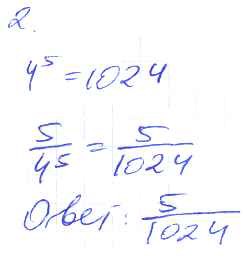 2.
4^5 = 1024
5/4^5 = 5/1024
Ответ: 5/1024